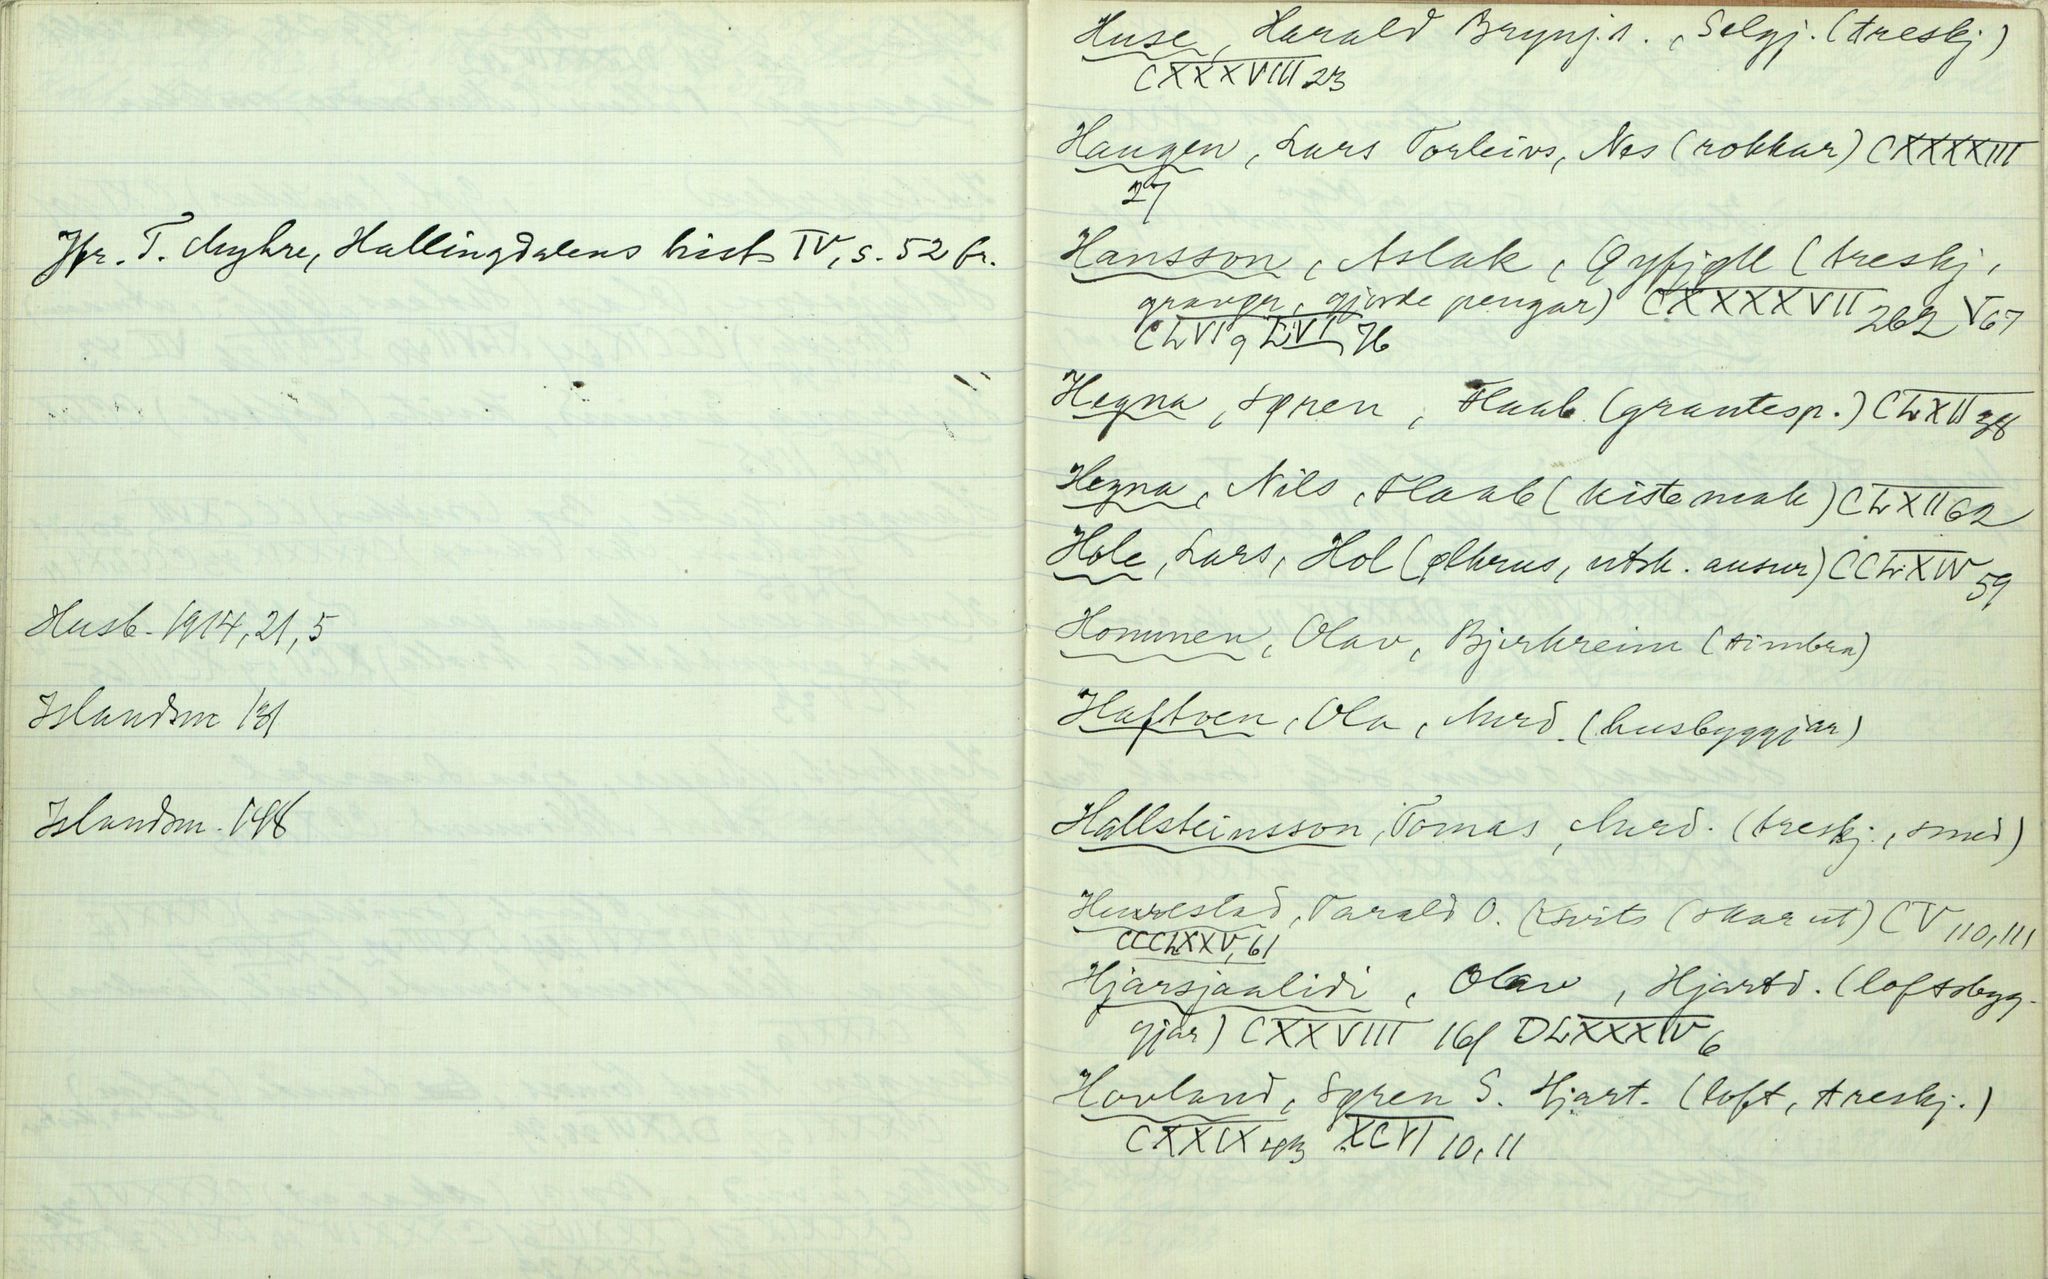 Jfr. T. Myhre, Hallingdalens hist IV, s. 52 fr.
Husb. 1914, 21, 5
Islandsm 131
Islandsm. 148
Huse, Harald Brynj.s., Selgj. (treskj)
CXXXVIII 23
Haugen, Lars Torleivs, Nes (rokkar) CXXXXIII
27
Hansson, Aslak, Øyfjell (treskj,
gravør, gjorde pengar) CXXXXVII 262 V 67
CLVI 9 LVI 76
Hegna, Søren, Flaab. (grautesp.) CLXII 38
Hegna, Nils, Flaab (kistemak) CLXII 62
Hole, Lars, Hol (ølkrus, utsk. ausur) CCLXIV 59
Hommen, Olav, Bjerkreim (timbra)
Haftven, Ola, Nurd. (husbyggjar)
Hallsteinsson, Tomas, Nurd. (treskj., smed)
Tarald O. Kvits (skar ut) CV 110, 111
CCCLXXV, 61
Hjarsjaalidi, Olav, Hjartd. (loftsbyg-
gjar) CXXVIII 161 DLXXXIV 6
Hovland, Søren S. Hjart. (loft, treskj.)
CXXIX 43 XCVI 10, 11